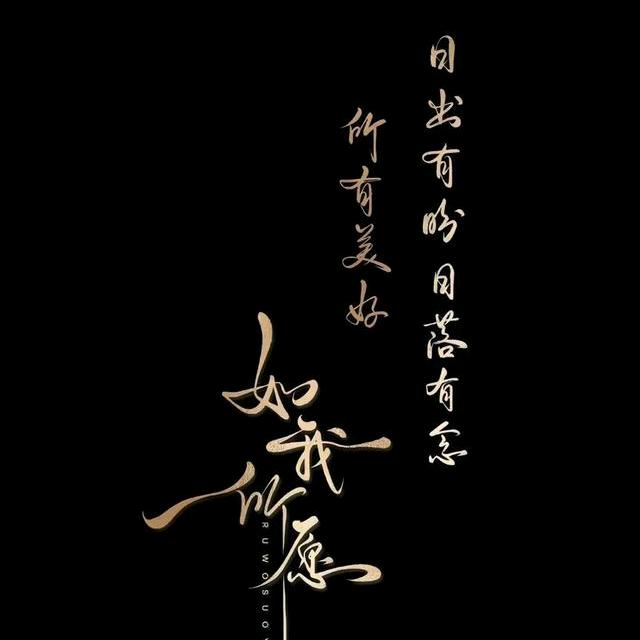 日出有盼日落有念
所有美好
如我所愿
RUWOSUOY